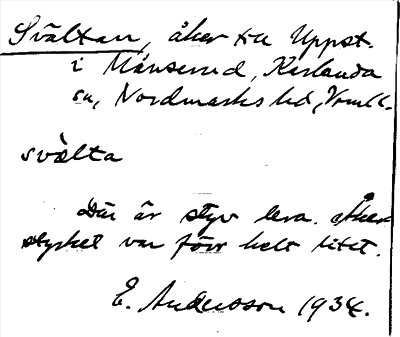 Svältan, åker till Uppst.
i Månserud, Karlanda
sn, Nordmarks hd, Vrml.
svälta
Där är styv lera. Åker-
stycket var förr helt litet.
E. Andersson 1934.